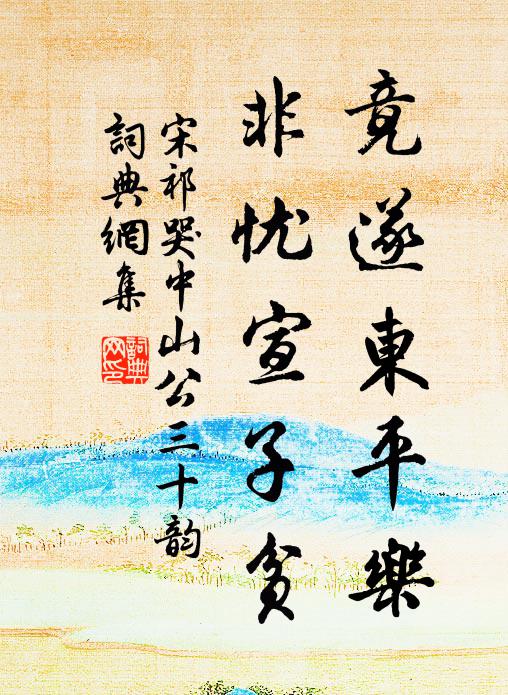 竟遂東平樂
非忧宣子貧
宋祁哭中山公三十韵
詞典網集
詞典網印